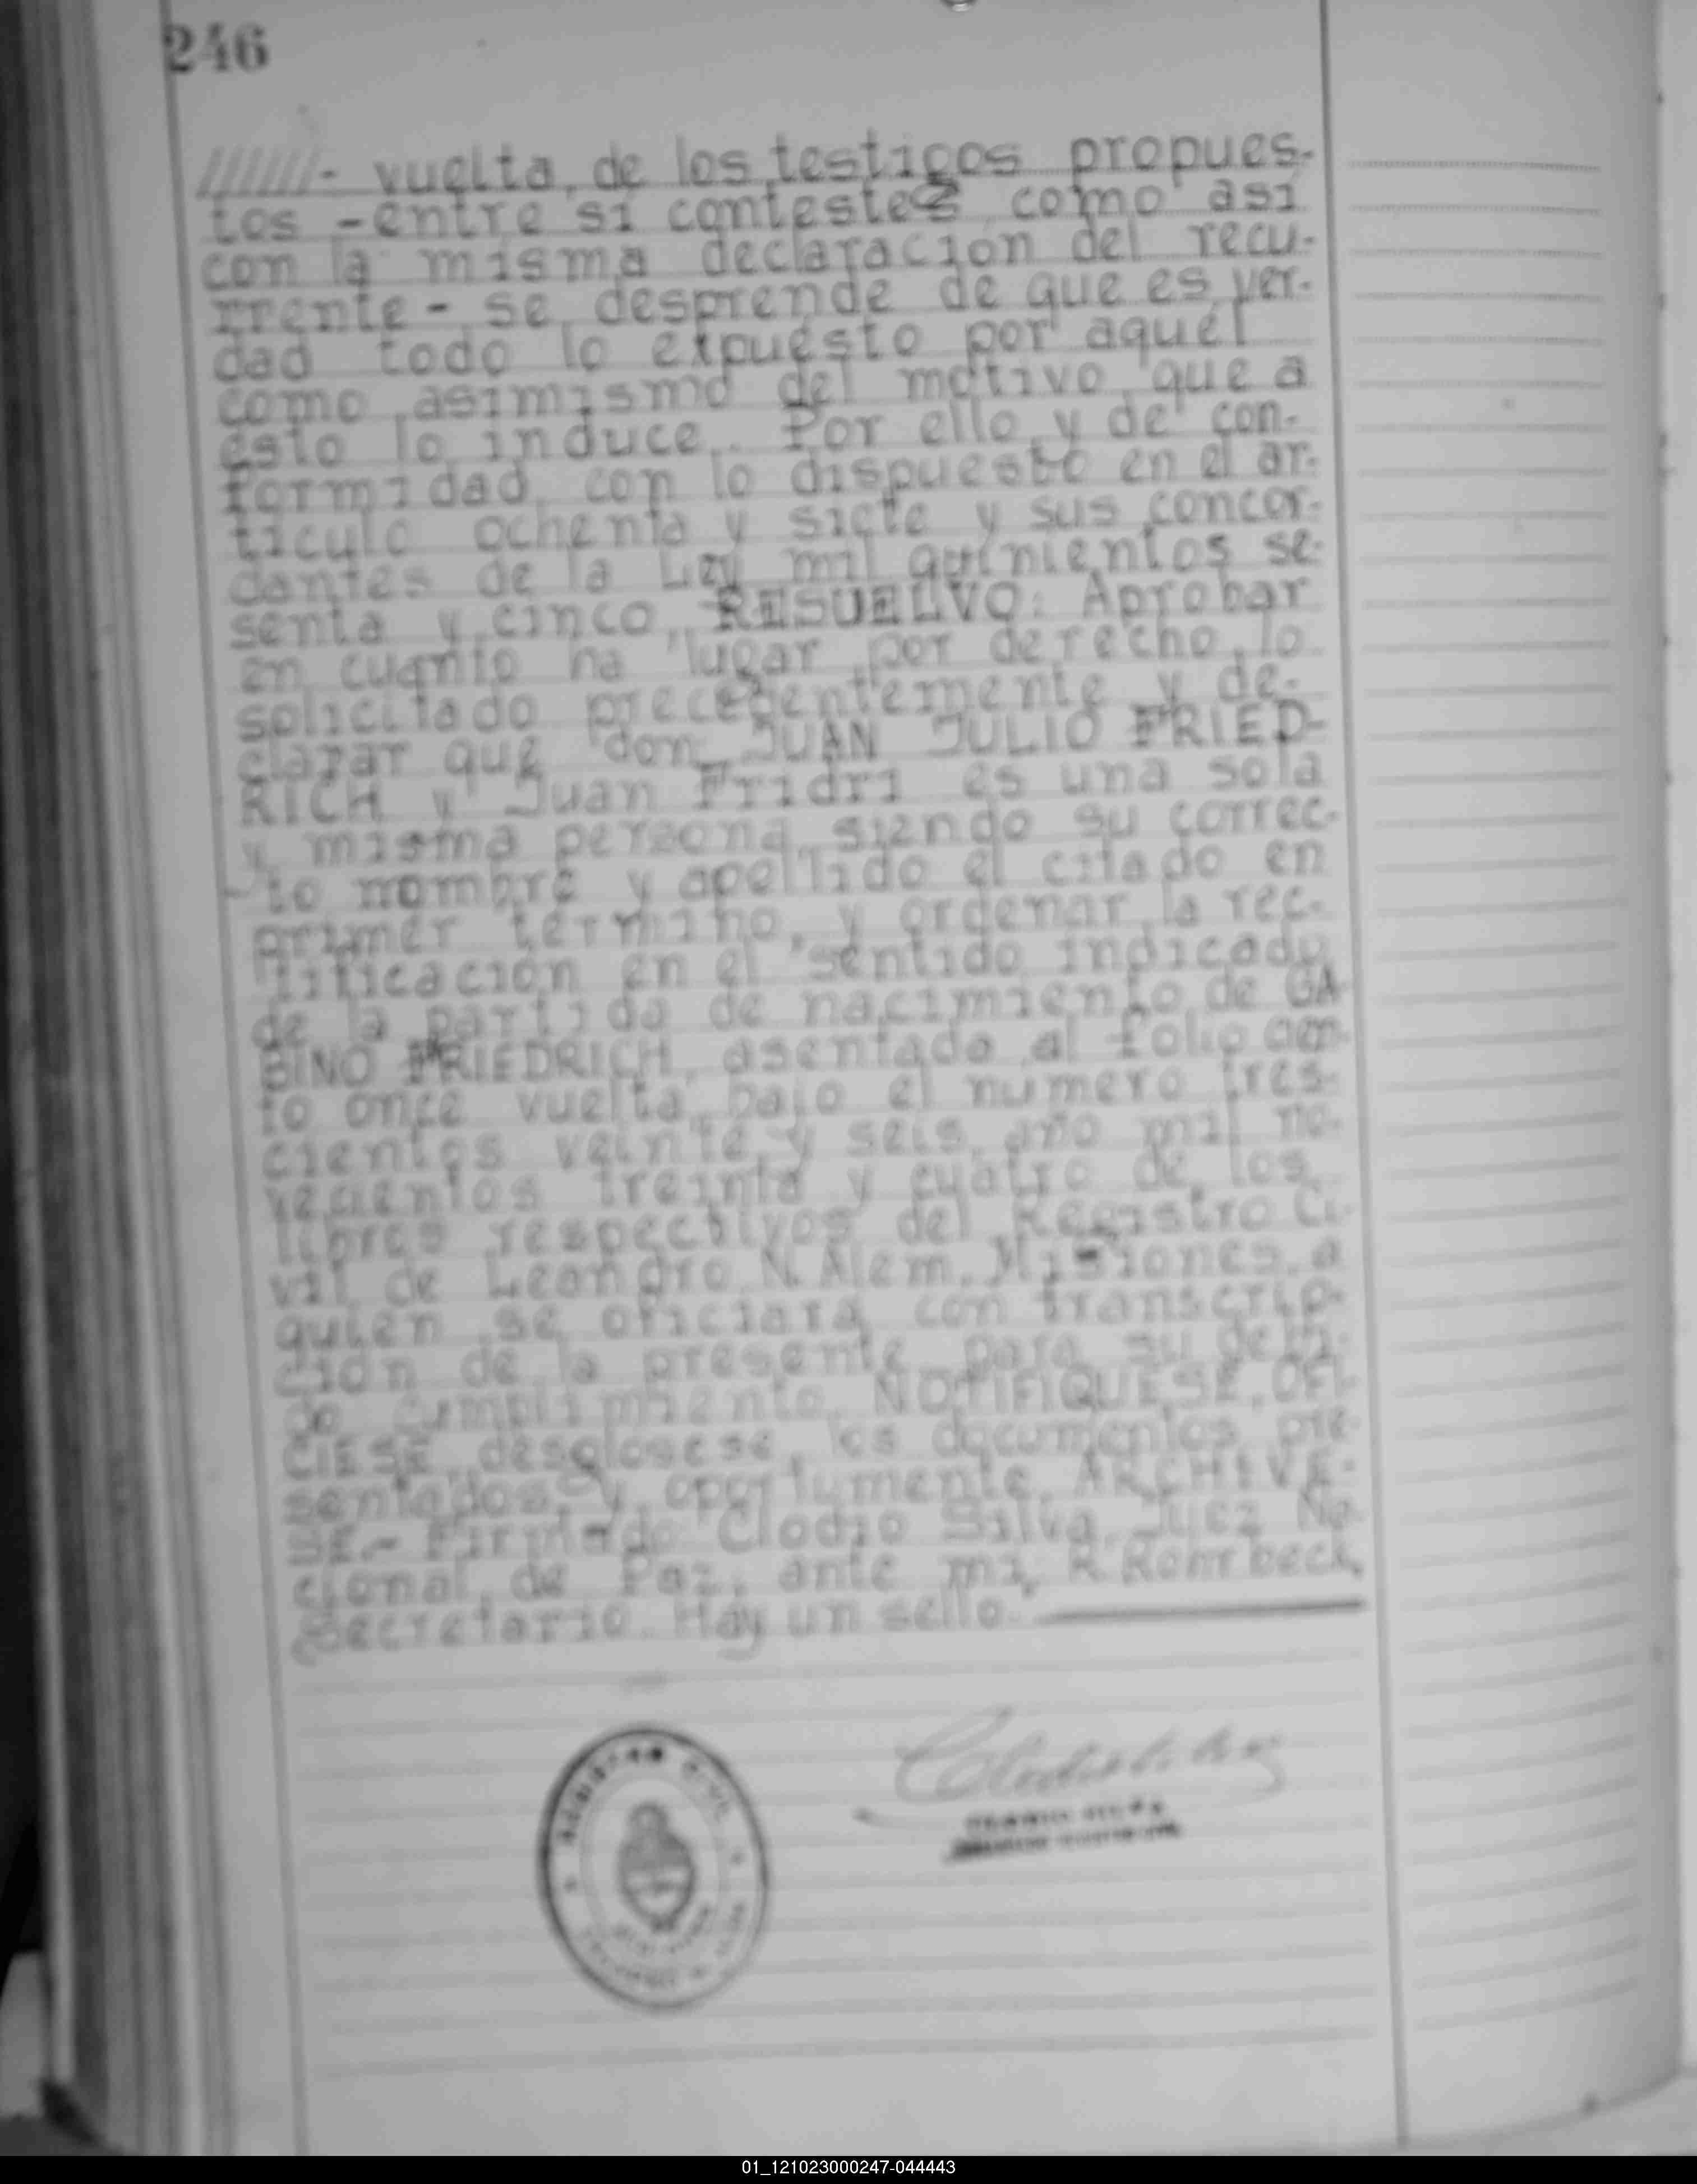 246
//////- vuelta, de los testigos propues-
tos -entre sí contestes como así
con la misma declaración del recu-
rrente - se desprende de que es ver-
dad todo lo expuésto por aquél
como asimismo del motivo que a
ésto lo induce. Por ello y de con-
formidad con lo dispuesto en el ar-
tículo ochenta y siete y sus concor-
dantes de la Ley mil quinientos se-
senta y cinco, RESUELVO: Aprobar
en cuanto ha lugar por derecho, lo
solicitado precedentemente y de-
clarar que don JUAN JULIO FRIED-
RICH y Juan Fridri es una sola
y misma persona, siendo su correc-
to nombre y apellido el citado en
primer término, y ordenar la rec-
tificación en el sentido indicado
de la partida de nacimiento de GA-
BINO FRIEDRICH, asentada al folio cien-
to once vuelta, bajo el número tres-
cientos veinte y seis, año mil no-
vecientos treinta y cuatro de los
libros respectivos del Registro Ci-
vil de Leandro N. Alem, Misiones, a
quien se oficiará con transcrip-
ción de la presente para su debi-
do cumplimiento. NOTIFIQUESE, OFI-
CIESE, desglosese los documentos pre-
sentados, y oportumente, ARCHIVE-
SE.- Firmado Clodio Silva, Juez Na-
cional de Paz, ante mi, R. Rohrbeck,
Secretario. Hay un sello.
REGISTRO CIVIL
01_121023000247-044443